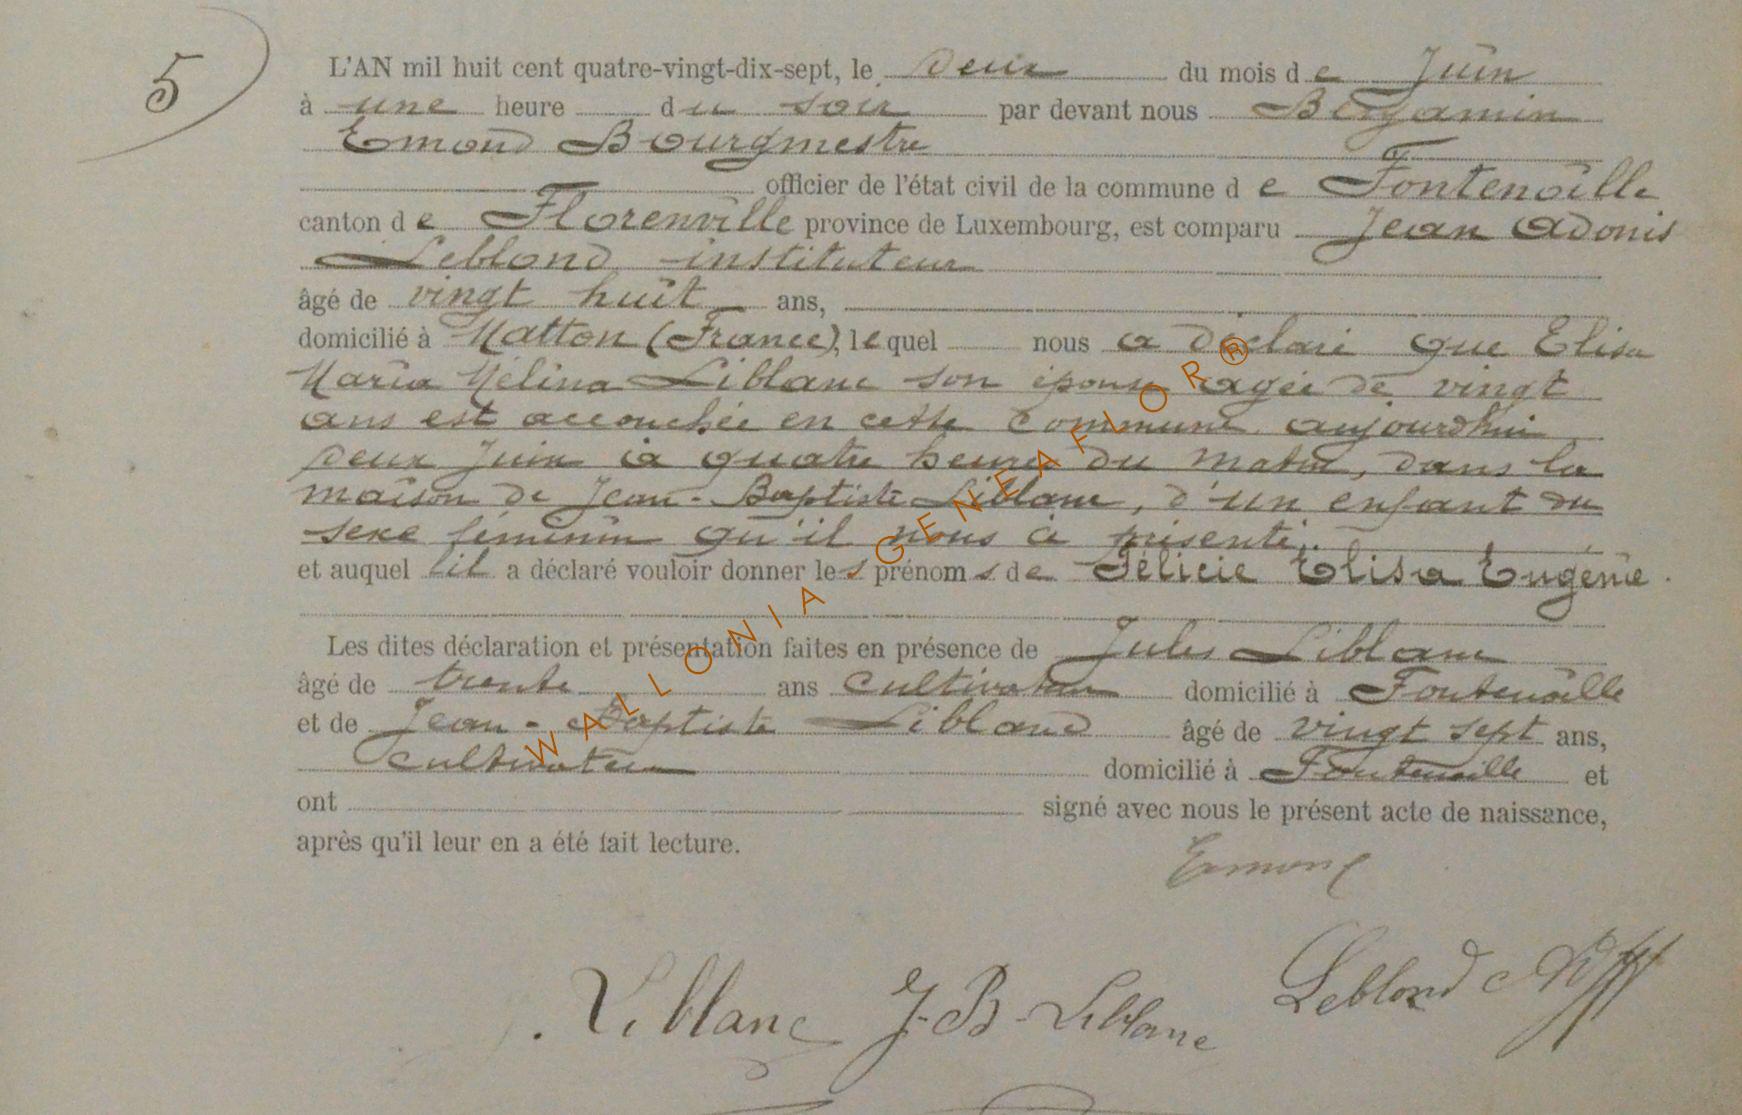 5
L'AN mil huit cent quatre-vingt-dix-sept, le deux du mois de Juin
à une heure du soir par devant nous Benjamin
Emond Bourgmestre
officier de l'état civil de la commune de Fontenoille
canton de Florenville province de Luxembourg, est comparu Jean Adonis
Leblond instituteur
âgé de vingt huit ans,
domicilié à Matton (France), lequel nous a déclaré que Elisa
Maria Mélina Liblanc son épouse agée de vingt
ans est accouchée en cette Commune aujourdhui
deux Juin à quatre heures du matin, dans la
maison de Jean-Baptiste Liblanc, d'un enfant du
sexe féminin qu'il nous a présenté,
et auquel il a déclaré vouloir donner les prénoms de Félicie Elisa Eugénie.
Les dites déclaration et présentation faites en présence de Jules Liblanc
âgé de trente ans cultivateur domicilié à Fontenoille
et de Jean-Baptiste Libland âgé de vingt sept ans,
cultivateur domicilié à Fontenoille et
ont signé avec nous le présent acte de naissance,
après qu'il leur en a été fait lecture.
Emond
Liblanc J-B-Liblanc Leblond
WALLONIA GENEAFLOR®